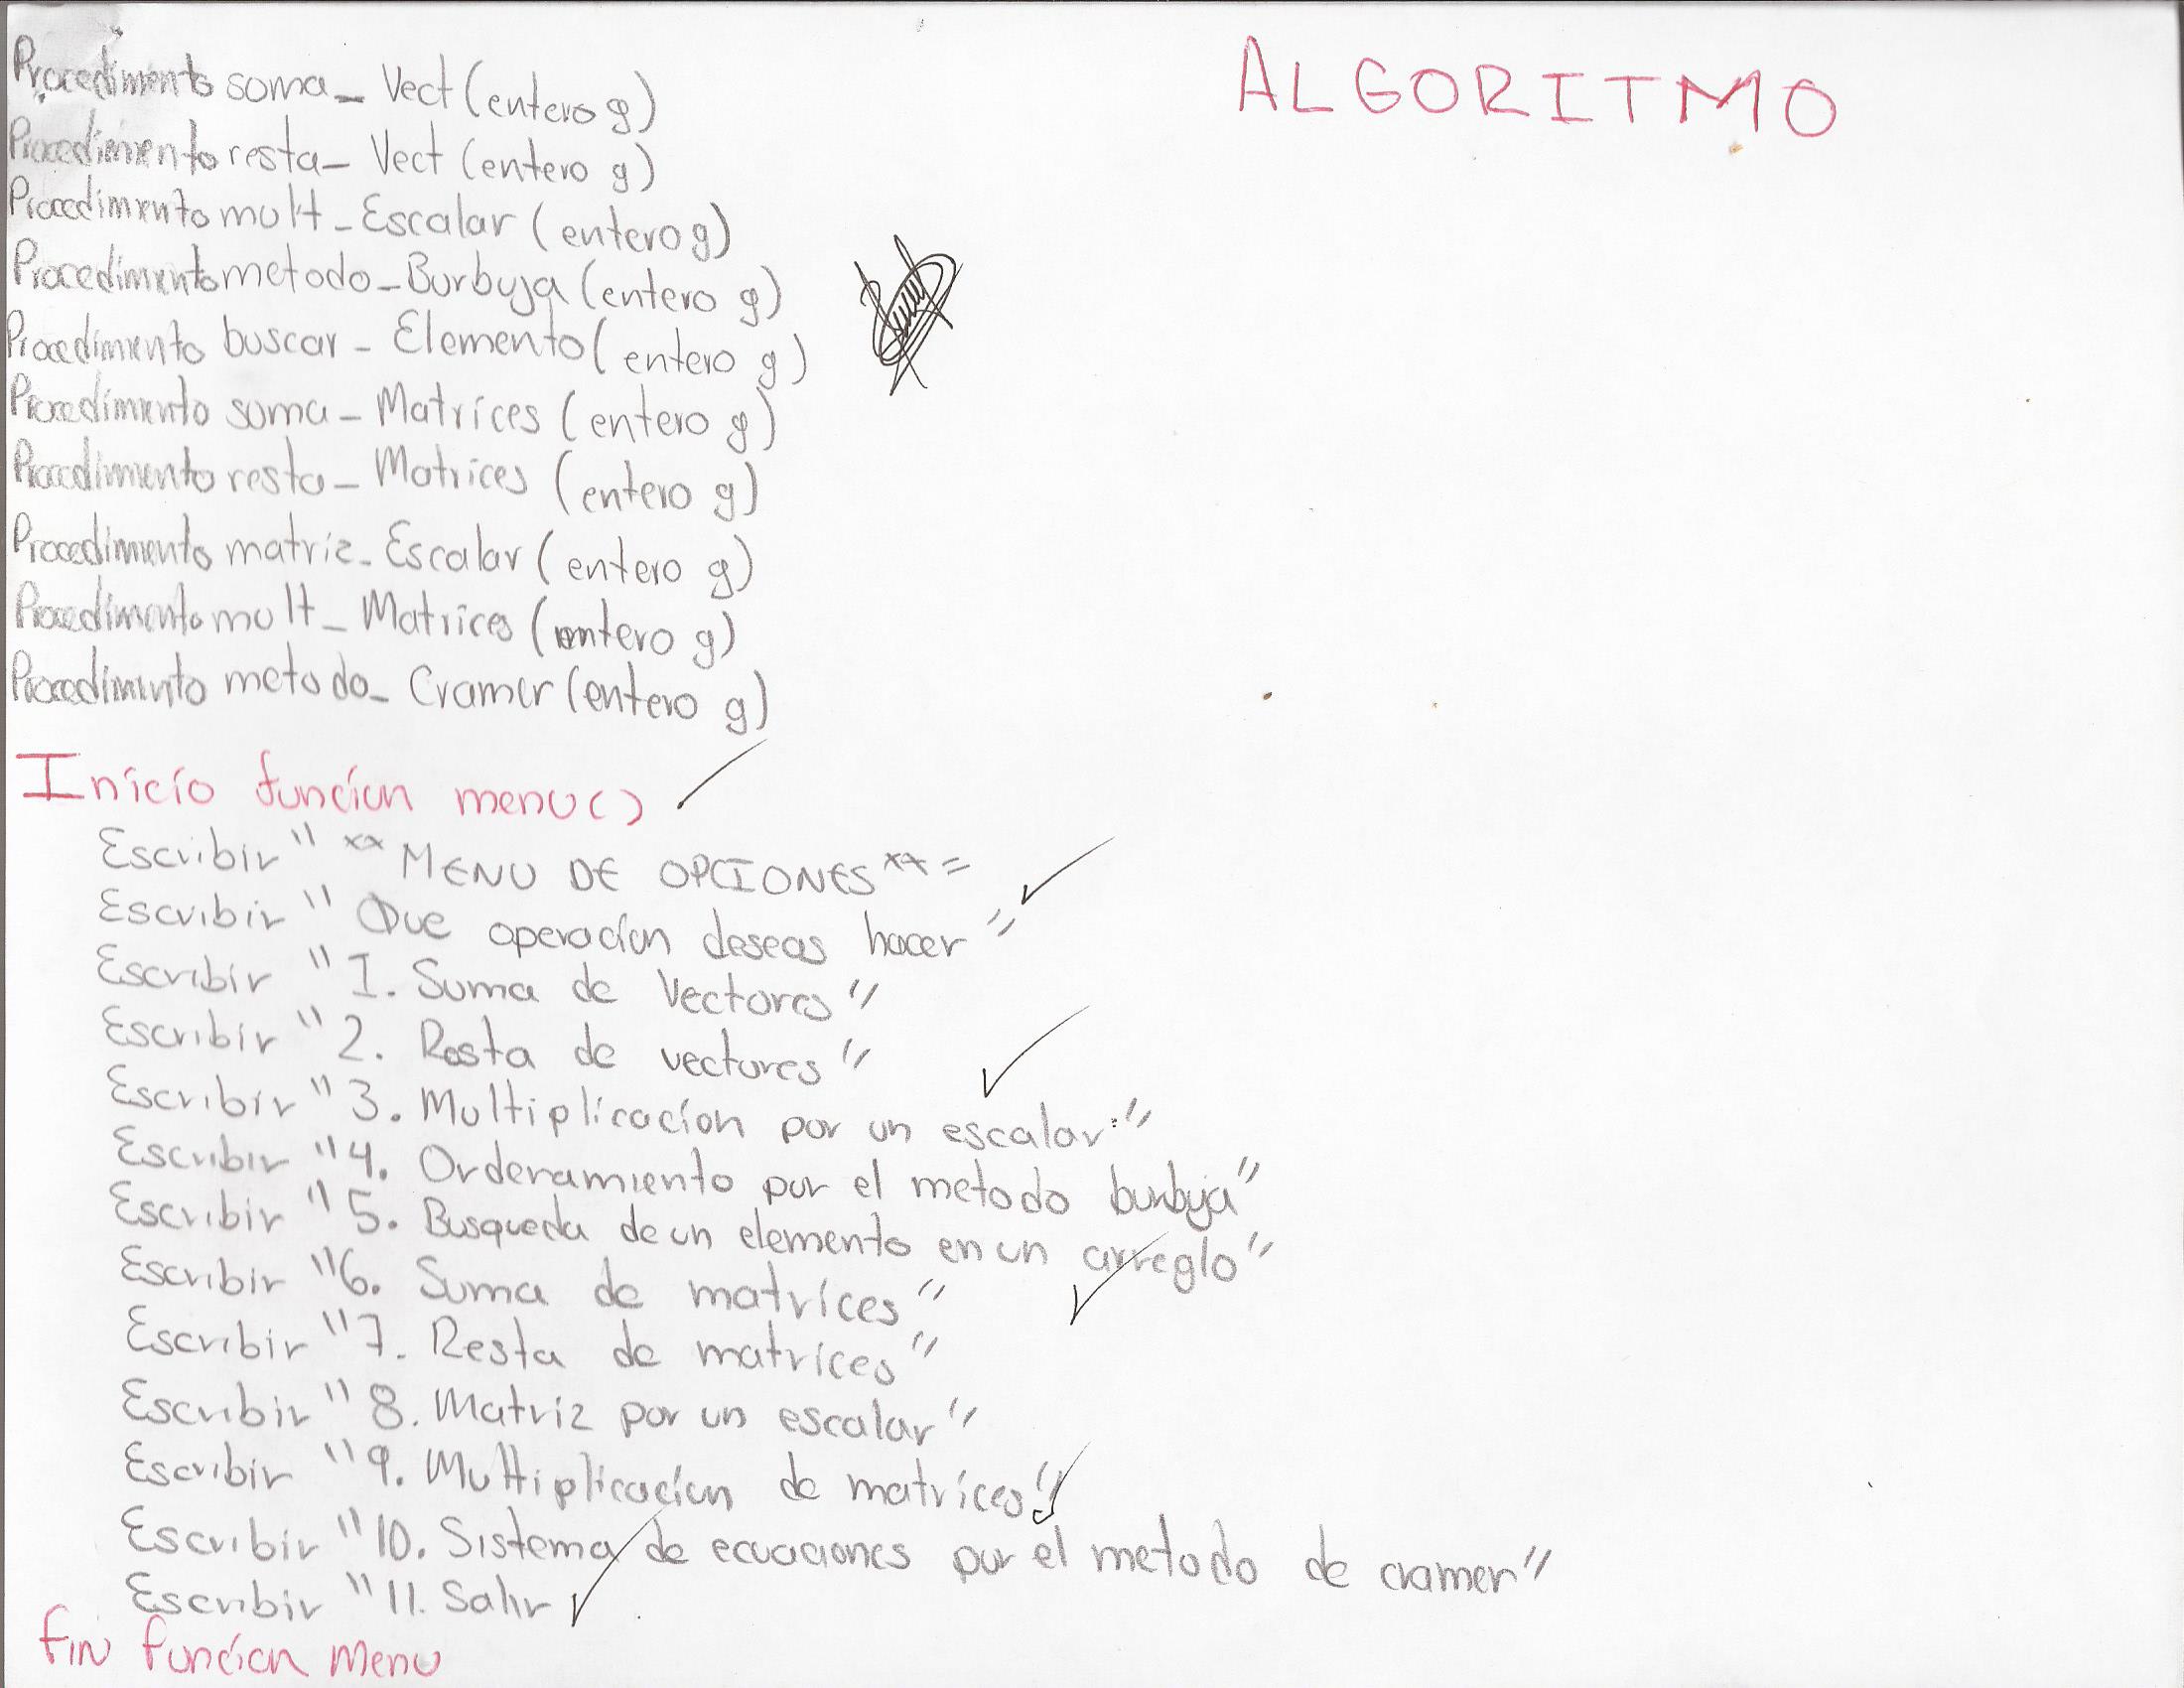 ALGORITMO
Procedimiento soma_Vect (entero g)
Procedimiento resta_Vect (entero g)
Procedimiento mult_Escalar (entero g)
Procedimiento metodo_Burbuja (entero g)
Procedimiento buscar_Elemento (entero g)
Procedimiento suma_Matrices (entero g)
Procedimiento resta_Matrices (entero g)
Procedimiento matriz_Escalar (entero g)
Procedimiento mult_Matrices (entero g)
Procedimiento metodo_Cramer (entero g)
Inicio funcion menu()
Escribir "** MENU DE OPCIONES **"
Escribir "Que operacion deseas hacer"
Escribir "1. Suma de Vectores"
Escribir "2. Resta de vectores"
Escribir "3. Multiplicacion por un escalar:"
Escribir "4. Ordenamiento por el metodo burbuja"
Escribir "5. Busqueda de un elemento en un arreglo"
Escribir "6. Suma de matrices"
Escribir "7. Resta de matrices"
Escribir "8. Matriz por un escalar"
Escribir "9. Multiplicacion de matrices"
Escribir "10. Sistema de ecuaciones por el metodo de cramer"
Escribir "11. Salir
Fin funcion Menu